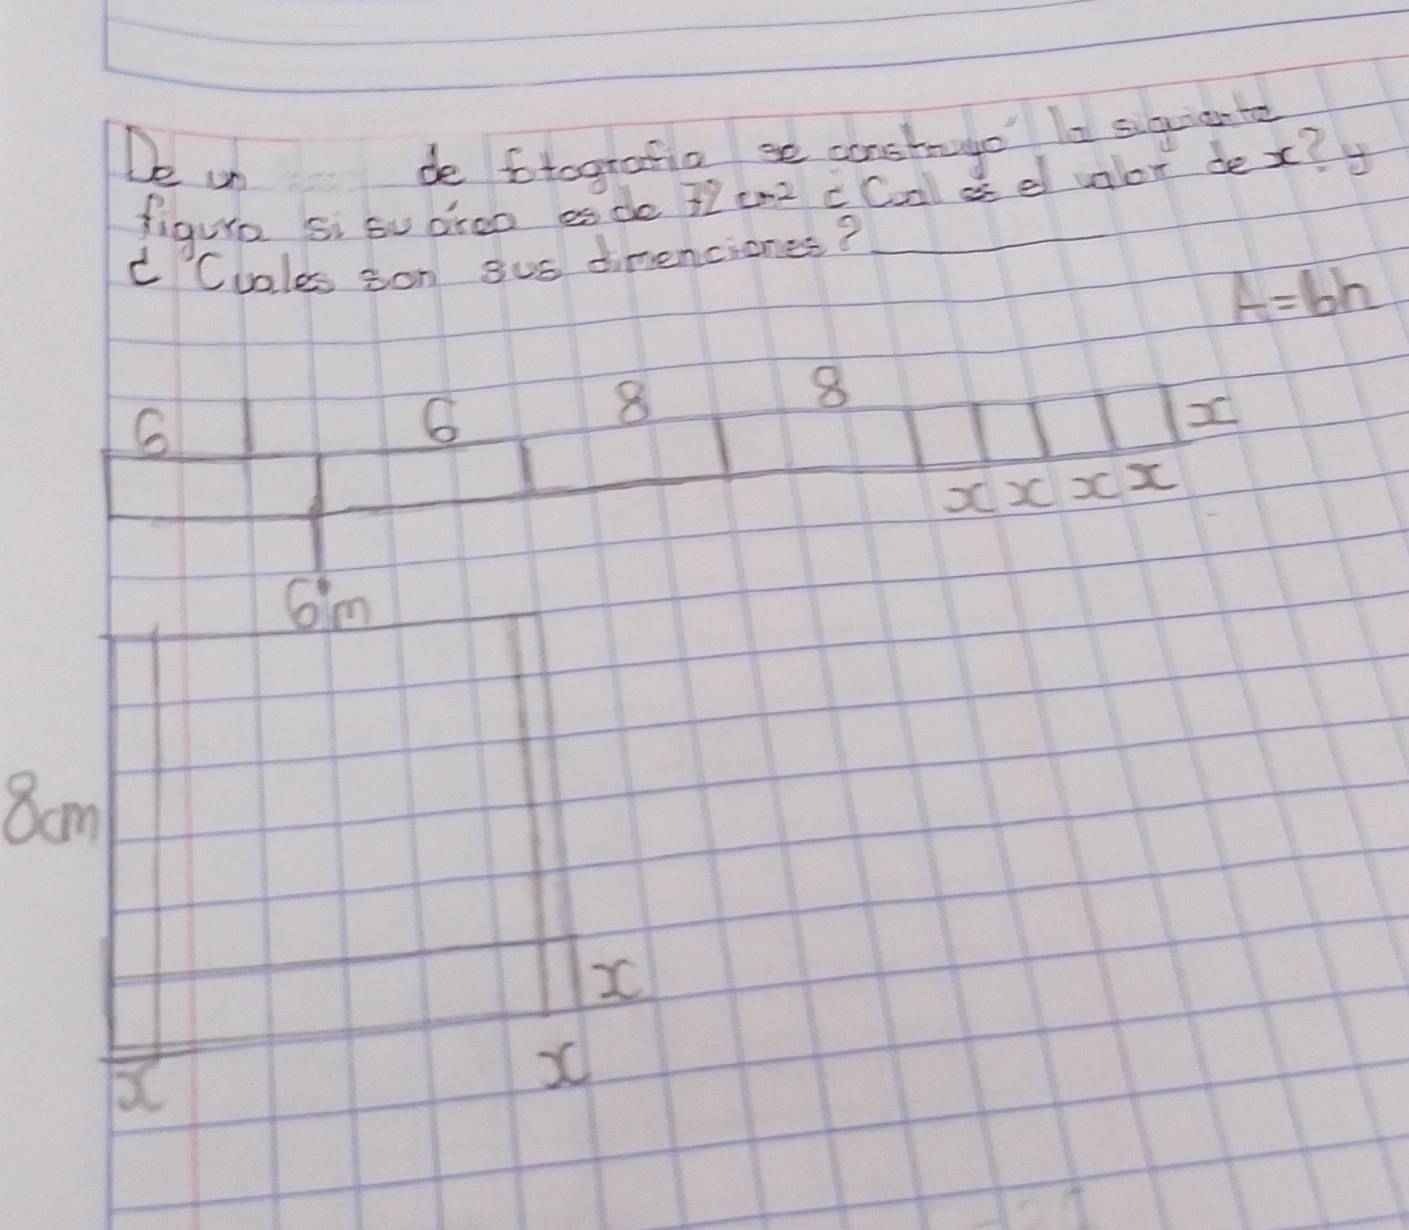 De un de fotografia se construyó la siguiente
figura si su área es de 72 cm2 ¿Cual es el valor de x? y
¿Cuales son sus dimenciones?
A=bh
6 6 8 8 x
x x x x
6m
8cm
x
x x